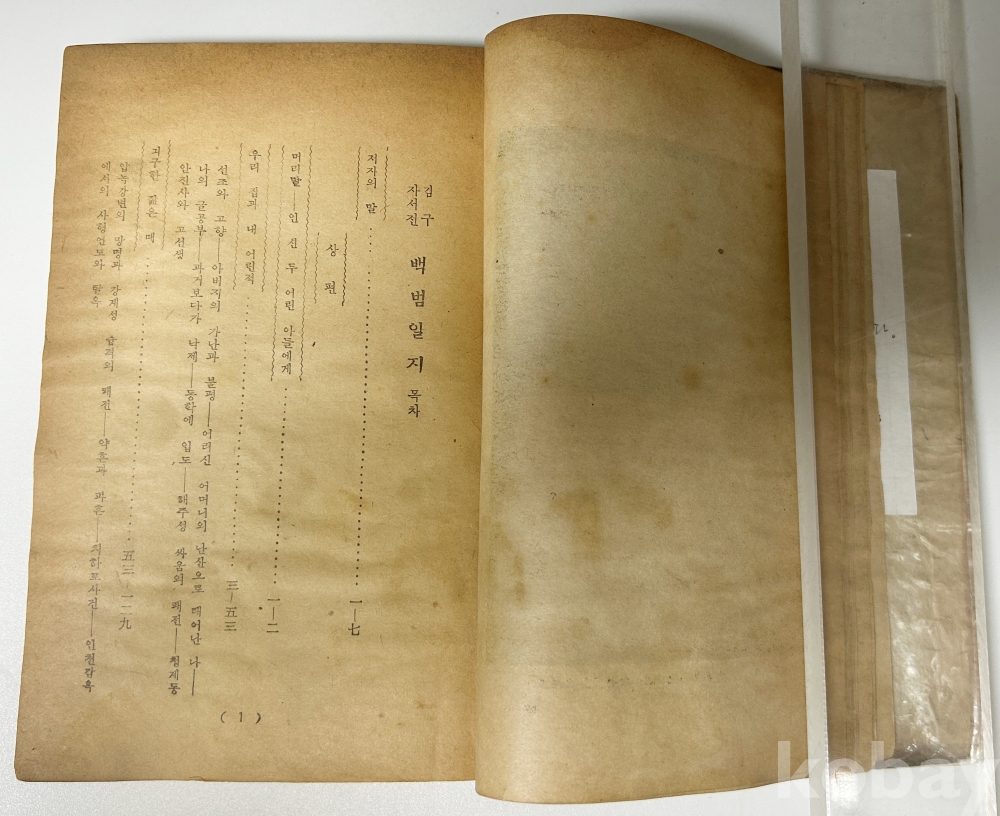 김구
자서전
백범일지 목차
저자의 말 一—七
상편
머리말——인 신 두 어린 아들에게 一—二
우리 집과 내 어린적 三—五三
선조와 고향——아버지의 가난과 불평——어려신 어머니의 난산으로 태어난 나——
나의 글공부——과거보다가 낙제——동학에 입도——해주성 싸움의 패전——청계동
안진사와 고선생
긔구한 젊은 때 五三—一二九
압녹강변의 망명과 강계성 습격의 패전——약혼과 파혼——치하포사건——인천감옥
에서의 사형언도와 탈옥
(1)
다.
kobay